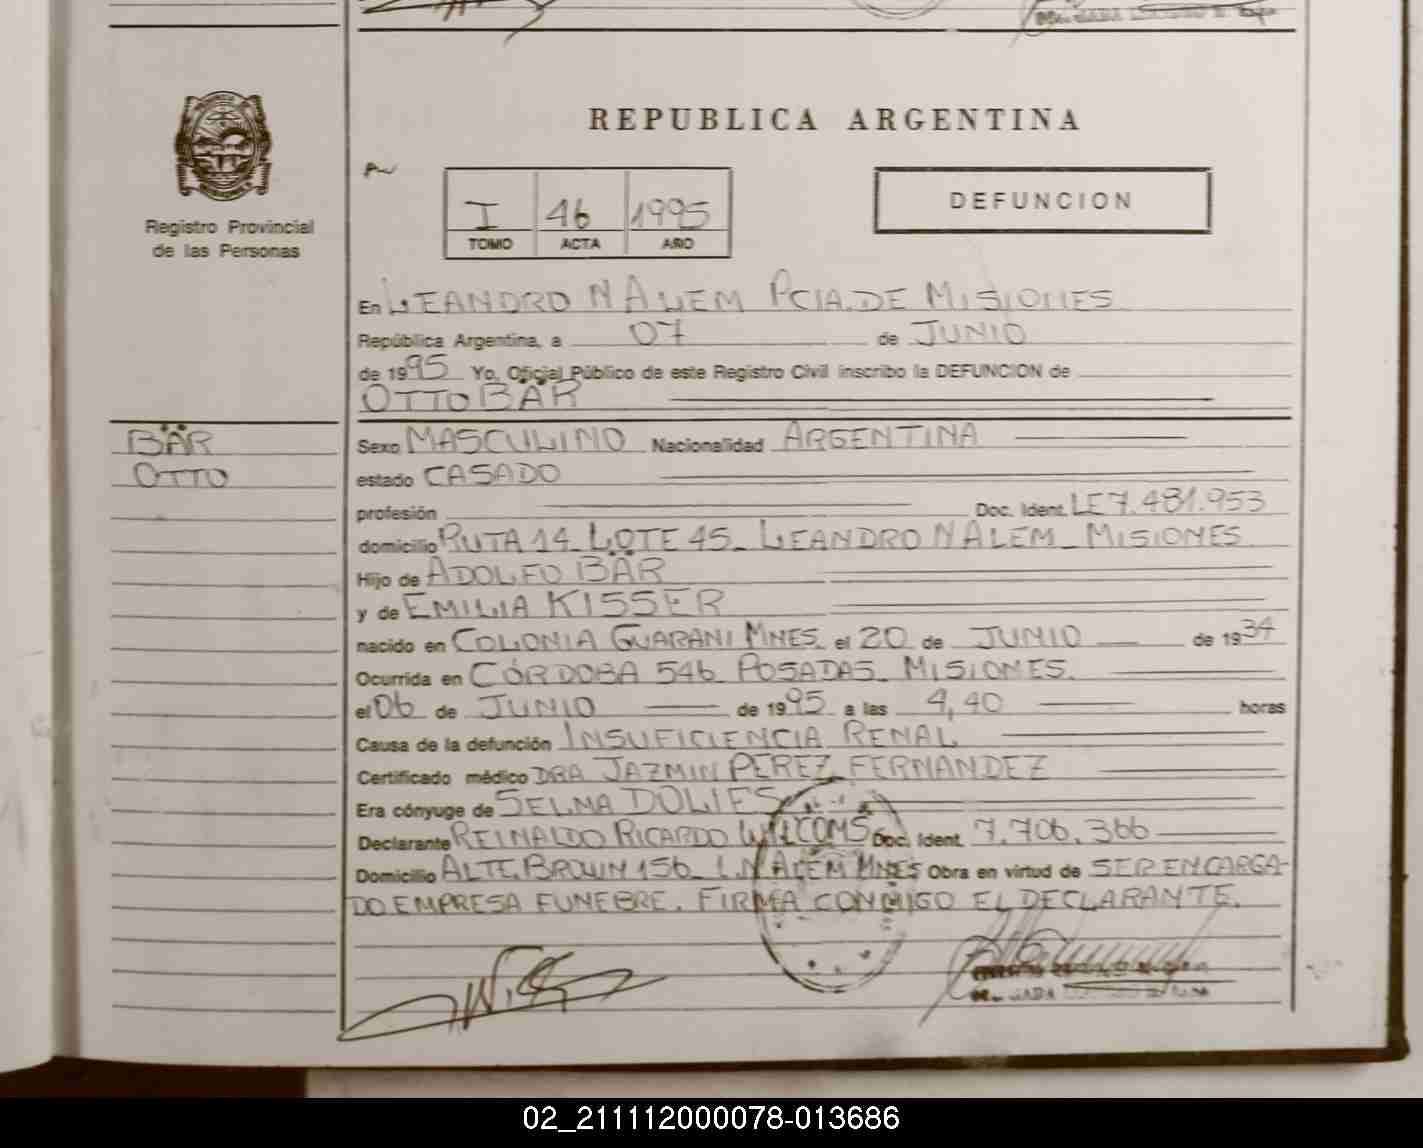 REPUBLICA ARGENTINA
Registro Provincial
de las Personas
I 46 1995
TOMO ACTA AÑO
DEFUNCION
En LEANDRO N ALEM PCIA. DE MISIONES
República Argentina, a 07 de JUNIO
de 1995 Yo, Oficial Público de este Registro Civil inscribo la DEFUNCION de
OTTO BÄR
BÄR
OTTO
Sexo MASCULINO Nacionalidad ARGENTINA
estado CASADO
profesión Doc. Ident. LE 7.481.953
domicilio RUTA 14 LOTE 45_ LEANDRO N ALEM_ MISIONES
Hijo de ADOLFO BÄR
y de EMILIA KISSER
nacido en COLONIA GUARANI MNES. el 20 de JUNIO de 1934
Ocurrida en CÓRDOBA 546 POSADAS. MISIONES.
el 06 de JUNIO de 1995 a las 4,40 horas
Causa de la defunción INSUFICIENCIA RENAL
Certificado médico DRA JAZMIN PEREZ FERNANDEZ
Era cónyuge de SELMA DOLIES
Declarante REINALDO RICARDO WILCOMS Doc. Ident. 7.706.366
Domicilio ALTE. BROWN 156_ L.N ALEM MNES Obra en virtud de SER ENCARGA-
DO EMPRESA FUNEBRE. FIRMA CONMIGO EL DECLARANTE.
02_211112000078-013686